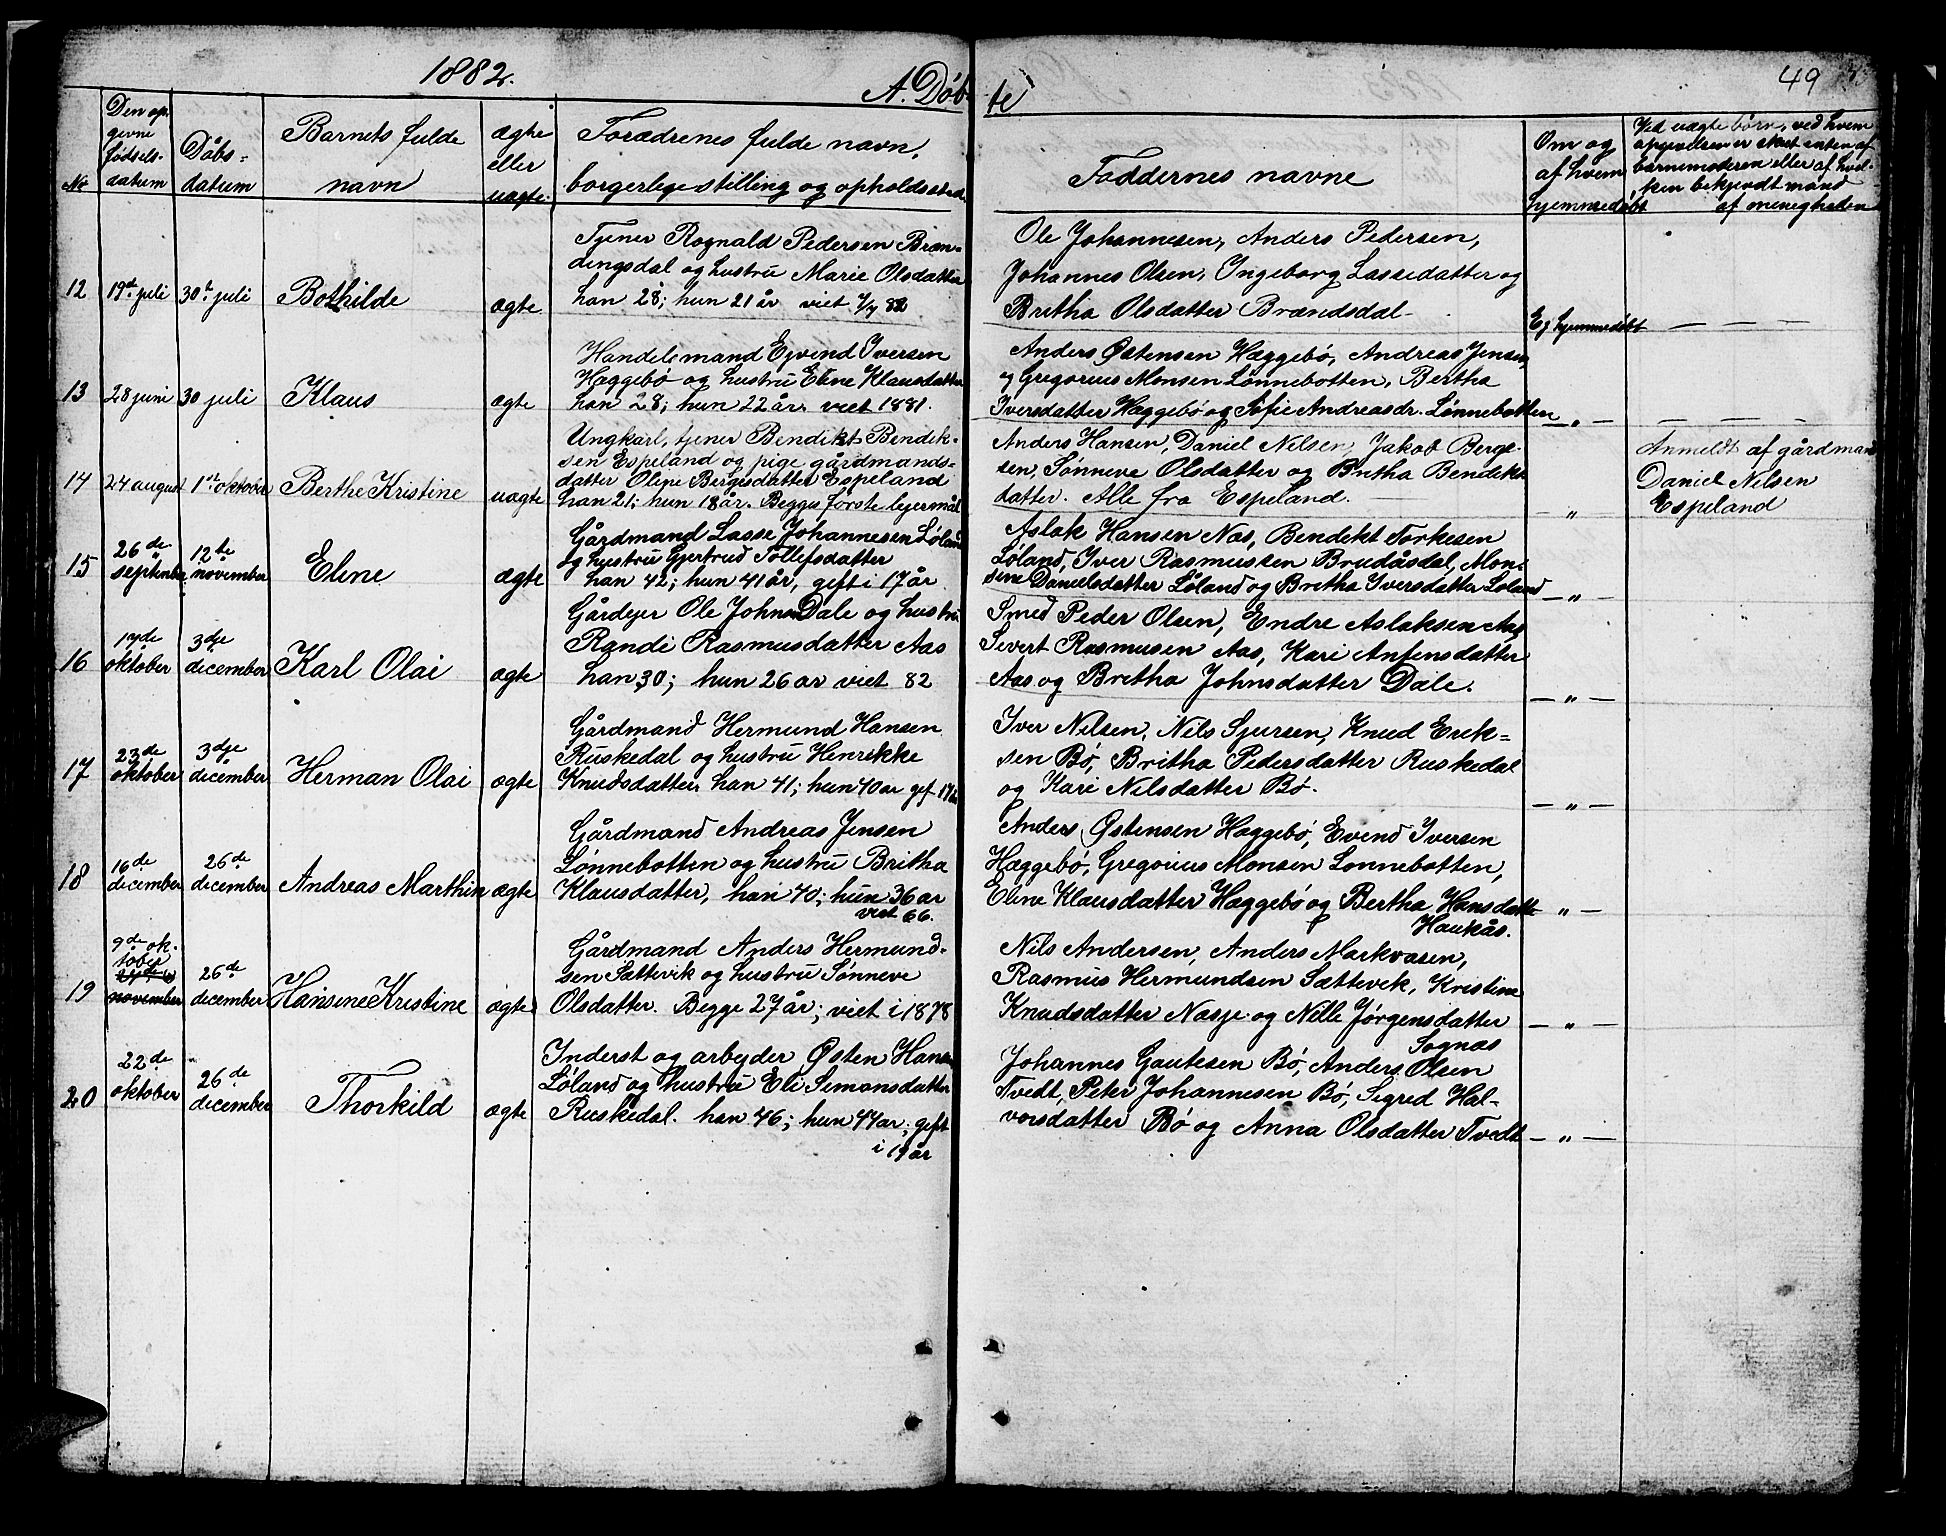 1882.
A. Døbte
49
No
Den op-
givne
fødsels-
datum
Døbs-
datum
Barnets fulde
navn
ægte
eller
uægte.
Forædrenes fulde navn,
borgerlige stilling og opholdssted
Faddernes navne
Om og
af hvem
hjemmedøbt
Ved uægte børn, ved hvem
opgivelsen er skeet enten af
barnemoderen eller af hvil-
ken bekjendt mand
af menigheden
12
19de juli
30te juli
Bothilde
ægte
Tjener Rognald Pedersen Bræn-
dingsdal og hustru Marie Olsdatter
han 28; hun 21 år viet 82
Ole Johannesen, Anders Pedersen,
Johannes Olsen, Ingeborg Lassedatter og
Britha Olsdatter Brændsdal
Ej hjemmedøbt
— — —
13
28 juni
30 juli
Klaus
ægte
Handelsmand Ejvind Iversen
Hæggebø og hustru Eline Klausdatter
han 28; hun 22 år. viet 1881.
Anders Østensen Hæggebø, Andreas Jensen
og Gregorius Monsen Lønnebotten, Bertha
Iversdatter Hæggebø og Sofie Andreasdr. Lønnebotten
— " —
— — — —
14
24 august
1ste oktober
Berthe Kristine
uægte
Ungkarl, tjener Bendikt Bendik-
sen Espeland og pige gårdmands-
datter Oline Bergesdatter Espeland
han 21; hun 18 år. Begges første lejermål
Anders Hansen, Daniel Nilsen, Jakob Berge-
sen, Sønneve Olsdatter og Britha Bendikts
datter. Alle fra Espeland. —
— " —
Anmeldt af gårdmand
Daniel Nilsen
Espeland
15
26de
september
12te
november
Eline
ægte
Gårdmand Lasse Johannesen Løland
og hustru Gjertrud Tollefsdatter
han 42; hun 41 år, gift i 17 år
Aslak Hansen Nas, Bendikt Torkesen
Løland, Iver Rasmussen Brudåsdal, Mon-
sine Danielsdatter Løland og Britha Iversdatter Løland
— " —
16
17de
oktober
3dje
december
Karl Olai
ægte
Gårdejer Ole Johnsen Dale og hustru
Randi Rasmusdatter Aas
han 30; hun 26 ar viet 82
Smed Peder Olsen, Endre Aslaksen Aas
Sivert Rasmusen Aas, Kari Antensdatter
Aas og Britha Johnsdatter Dale.
— " —
17
23de
oktober
3dje
december
Herman Olai
ægte
Gårdmand Hermund Hansen
Ruskedal og hustru Henrikke
Knudsdatter, han 41; hun 40 ar gif 17
Iver Nilsen, Nils Sjursen, Knud Erik-
sen Bø, Britha Pedersdatter Ruskedal
og Kari Nilsdatter Bø.
— " —
18
16de
december
26de
december
Andreas Marthin
ægte
Gårdmand Andreas Jensen
Lønnebotten og hustru Britha
Klausdatter, han 40; hun 36 ar
viet 66.
Anders Østensen Hæggebø, Evend Iversen
Hæggebø, Gregorius Monsen Lonnebotten,
Eline Klausdatter Hæggebø og Bertha Hansdatte
Haukås.
— " —
19
9de ok-
tober
november
26de
december
Hansine Kristine
ægte
Gårdmand Anders Hermund-
sen Sættevik og hustru Sønneve
Olsdatter. Begge 27 år; viet i 1878
Nils Andersen, Anders Markvasen,
Rasmus Hermundsen Sættevik, Kristine
Knudsdatter Nasje og Nille Jørgensdatter
Sognæs
— " —
20
22de
oktober
26de
december
Thorkild
ægte
Inderst og arbejder Østen Hansen
Løland og hustru Eli Simonsdatter
Ruskedal. han 46; hun 44 ar; gift
i 19 år
Johannes Gautesen Bø, Anders Olsen
Tvedt, Peter Johannesen Bø, Sigred Hal-
vorsdatter Bø og Anna Olsdatter Tvedt
— " —